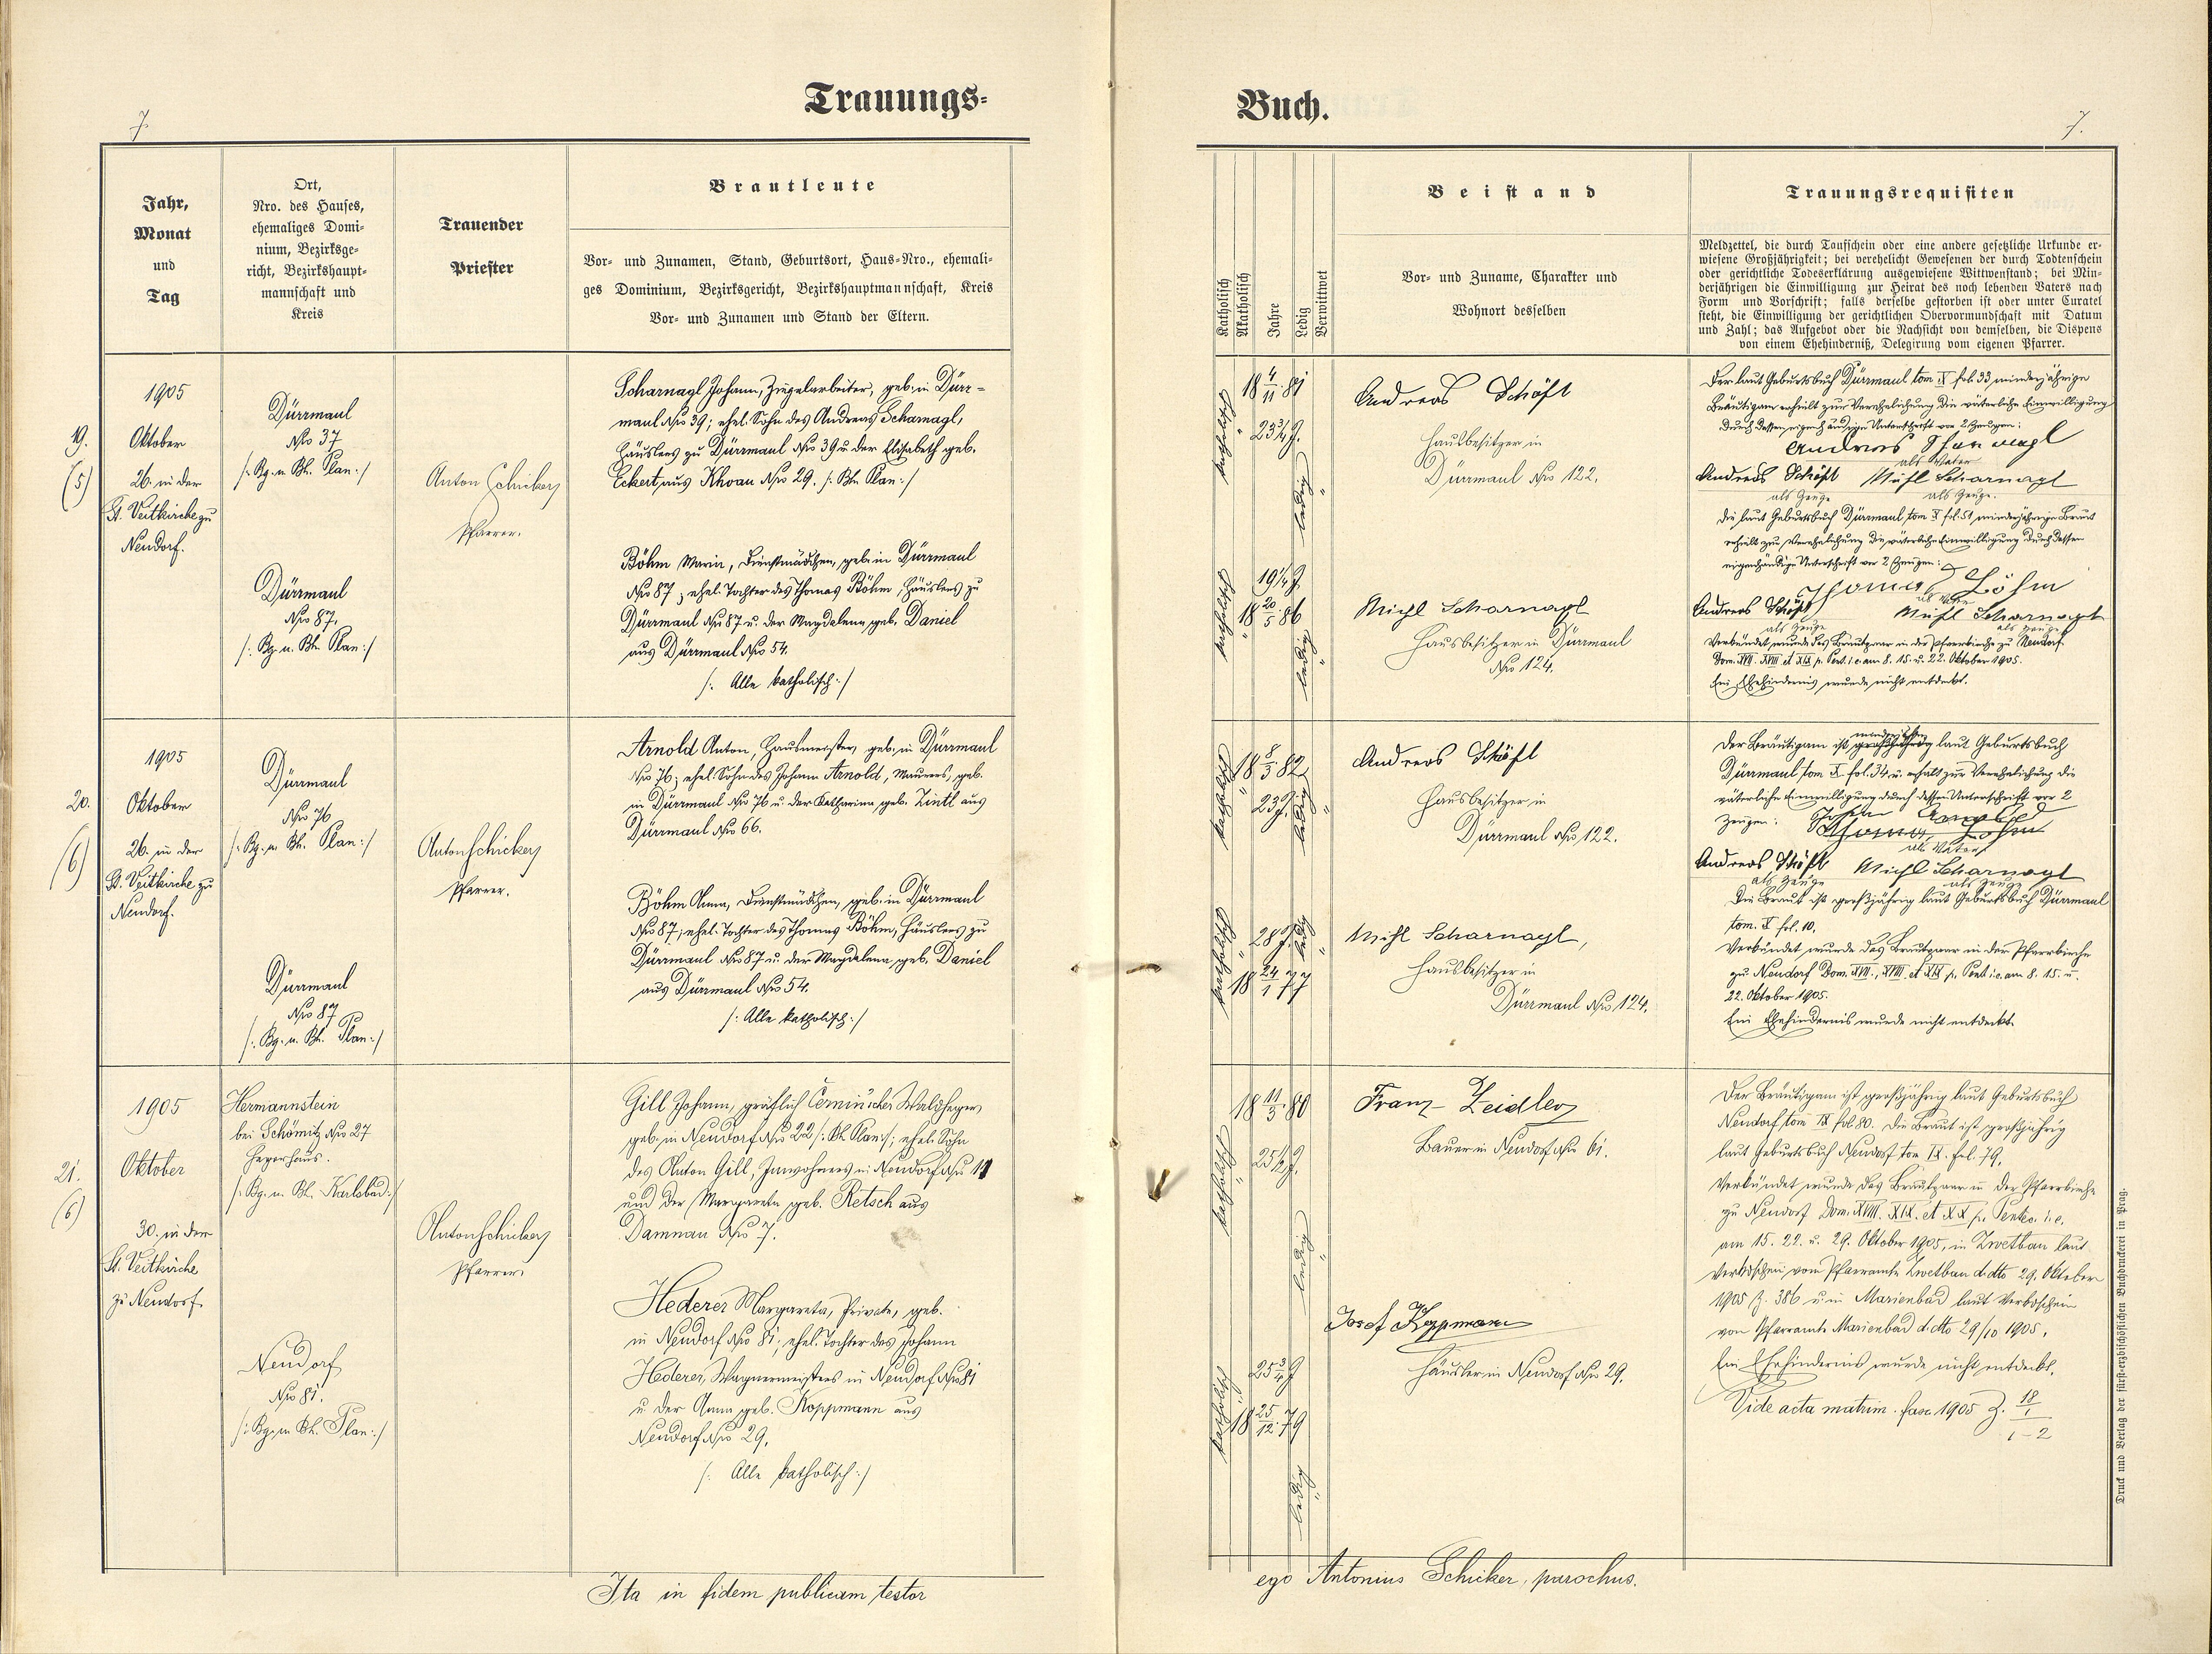 Trauungs-
7.
Jahr,
Monat
und
Tag
Ort,
Nro. des Hauses,
ehemaliges Domi-
nium, Bezirksge-
richt, Bezirkshaupt-
mannschaft und
Kreis
Trauender
Priester
Brautleute
Vor- und Zunamen, Stand, Geburtsort, Haus-Nro., ehemali-
ges Dominium, Bezirksgericht, Bezirkshauptmannschaft, Kreis
Vor- und Zunamen und Stand der Eltern.
19.
(5)
1905
Oktober
26. in der
St. Veitkirche zu
Neudorf.
Dürrmaul
Nro 37
/: Bg. u. Bh. Plan :/
Dürrmaul
Nro 87.
/: Bg. u. Bh. Plan :/
Anton Schicker
Pfarrer.
Scharnagl Johann, Ziegelarbeiter, geb. in Dürr-
maul Nro 39; ehel. Sohn des Andreas Scharnagl,
Häuslers zu Dürrmaul Nro 39 u. der Elisabeth geb.
Eckert, aus Khoau Nro 29. /: Bh. Plan :/
Böhm Maria, Dienstmädchen, geb. in Dürrmaul
Nro 87; ehel. Tochter des Thomas Böhm, Häuslers zu
Dürrmaul Nro 87 u. der Magdalena geb. Daniel
aus Dürrmaul Nro 54.
/: Alle katholisch :/
20.
(6)
1905
Oktober
26. in der
St. Veitkirche zu
Neudorf.
Dürrmaul
Nro 76
/: Bg. u. Bh. Plan :/
Dürrmaul
Nro 87
/: Bg. u. Bh. Plan :/
Anton Schicker
Pfarrer.
Arnold Anton, Hausmeister, geb. in Dürrmaul
Nro 76; ehel. Sohn des Johann Arnold, Maurers, geb.
in Dürrmaul Nro 76 u. der Katharina, geb. Zintl aus
Dürrmaul Nro 66.
Böhm Anna, Dienstmädchen, geb. in Dürrmaul
Nro 87; ehel. Tochter des Thomas Böhm, Häuslers zu
Dürrmaul Nro 87 u. der Magdalena, geb. Daniel
aus Dürrmaul Nro 54.
/: Alle katholisch :/
21.
(6)
1905
Oktober
30. in der
St. Veitkirche
zu Neudorf.
Hermannstein
bei Schömitz Nro 27
Hegerhaus.
/: Bg. u. Bh. Karlsbad :/
Neudorf
Nro 81.
/: Bg. u. Bh. Plan :/
Anton Schicker
Pfarrer.
Gill Johann, gräflich Černin'scher Waldheger,
geb. in Neudorf Nro 22 /: Bh. Plan :/; ehel. Sohn
des Anton Gill, Inwohners in Neudorf Nro 11
und der Margareta geb. Retsch aus
Damnau Nro 7.
Hederer Margareta, Private, geb.
in Neudorf Nro 81; ehel. Tochter des Johann
Hederer, Wagnermeisters in Neudorf Nro 81
u. der Anna geb. Koppmann aus
Neudorf Nro 29.
/: Alle katholisch :/
Ita in fidem publicam testor
Buch.
7.
Katholisch
Akatholisch
Jahre
Ledig
Verwittwet
Beistand
Vor- und Zuname, Charakter und
Wohnort desselben
Trauungsrequisiten
Meldzettel, die durch Taufschein oder eine andere gesetzliche Urkunde er-
wiesene Großjährigkeit; bei verehelicht Gewesenen der durch Todtenschein
oder gerichtliche Todeserklärung ausgewiesene Wittwenstand; bei Min-
derjährigen die Einwilligung zur Heirat des noch lebenden Vaters nach
Form und Vorschrift; falls derselbe gestorben ist oder unter Curatel
steht, die Einwilligung der gerichtlichen Obervormundschaft mit Datum
und Zahl; das Aufgebot oder die Nachsicht von demselben, die Dispens
von einem Ehehinderniß, Delegirung vom eigenen Pfarrer.
katholisch
18 4/11 81
23 3/4 J.
ledig
katholisch
19 1/4 J.
18 20/5 86
ledig
Andreas Schöft
Hausbesitzer in
Dürrmaul Nro 122.
Michl Scharnagl
Hausbesitzer in Dürrmaul
Nro 124.
Der laut Geburtsbuch Dürrmaul tom X fol. 33 minderjährige
Bräutigam erhielt zur Verehelichung die väterliche Einwilligung
durch dessen eigenhändige Unterschrift vor 2 Zeugen:
Andreas Scharnagl
als Vater
Andreas Schöft Michl Scharnagl
als Zeuge als Zeuge.
Die laut Geburtsbuch Dürrmaul tom X fol. 51 minderjährige Braut
erhielt zur Verehelichung die väterliche Einwilligung durch dessen
eigenhändige Unterschrift vor 2 Zeugen:
Thomas Böhm
als Vater
Andreas Schöft Michl Scharnagl
als Zeuge als Zeuge
Verkündet wurde das Brautpaar in der Pfarrkirche zu Neudorf
Dom. XVII. XVIII et XIX p. Pent. i. e. am 8. 15. u. 22. Oktober 1905.
Ein Ehehindernis wurde nicht entdeckt.
katholisch
18 8/3 82
23 J.
ledig
katholisch
28 J.
18 24/1 77
ledig
Andreas Schöft
Hausbesitzer in
Dürrmaul Nro 122.
Michl Scharnagl,
Hausbesitzer in
Dürrmaul Nro 124.
minderjährig
Der Bräutigam ist großjährig laut Geburtsbuch
Dürrmaul tom X. fol. 34 u. erhält zur Verehelichung die
väterliche Einwilligung durch dessen Unterschrift vor 2
Zeugen:
Thomas Böhm
als Vater
Andreas Schöft Michl Scharnagl
als Zeuge als Zeuge
Die Braut ist großjährig laut Geburtsbuch Dürrmaul
tom. X fol. 10.
Verkündet wurde das Brautpaar in der Pfarrkirche
zu Neudorf Dom. XVII., XVIII. et XIX p. Pent. i. e. am 8. 15. u.
22. Oktober 1905.
Ein Ehehindernis wurde nicht entdeckt.
katholisch
18 11/3 80
25 1/2 J.
ledig
katholisch
25 3/4 J
18 25/12 79
ledig
Franz Zeidler
Bauer in Neudorf Nro 61.
Josef Koppmann
Häusler in Neudorf Nro 29.
Der Bräutigam ist großjährig laut Geburtsbuch
Neudorf tom IX fol. 80. Die Braut ist großjährig
laut Geburtsbuch Neudorf tom IX. fol. 79.
Verkündet wurde das Brautpaar in der Pfarrkirche
zu Neudorf Dom. XVIII. XIX. et XX p. Pentec. i. e.
am 15. 22. u. 29. Oktober 1905, in Zwetbau laut
Verkdschein vom Pfarramte Zwetbau d. dto 29. Oktober
1905 Z. 386 u. in Marienbad laut Verkdschein
von Pfarramte Marienbad d. dto 29/10 1905.
Ein Ehehindernis wurde nicht entdeckt.
Vide acta matrim. fasc. 1905 Z. 18/1
1-2
Druck und Verlag der fürst-erzbischöflichen Buchdruckerei in Prag.
ego Antonius Schicker, parochus.